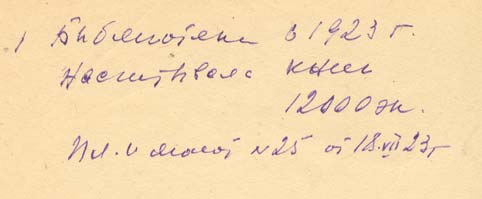 1 Библиотека в 1923 г.
насчитвала книг
12000 эк.
Пл. и молот N 25 от 18.VII 23 г